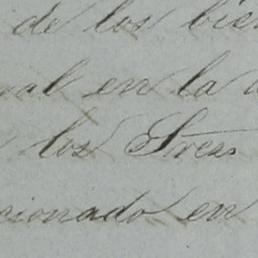 de los bien
al en la
los Sres
cionado en